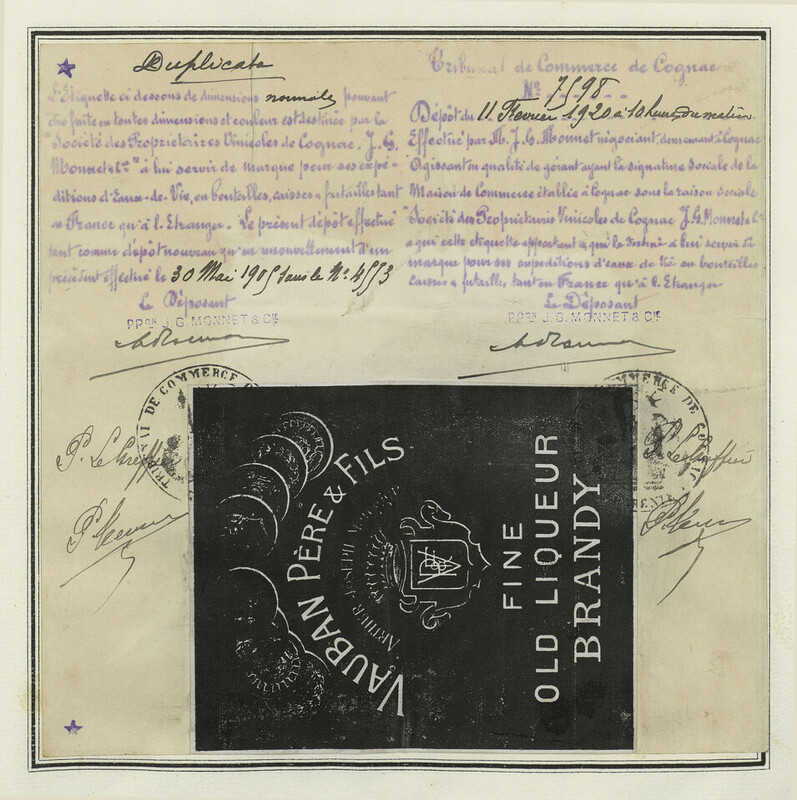 Duplicata
L'Etiquette ci dessous de dimensions normale pouvant
être faite en toutes dimensions et couleur est destinée par la
"Société des Propriétaires Vinicoles de Cognac. J. G.
Monnet & Cie" à lui servir de marque pour ses expé-
ditions d'Eaux-de-Vie, en bouteilles, caisses & futailles tant
en France qu'à l'Etranger. Le présent dépôt effectué
tant comme dépôt nouveau qu'en renouvellement d'un
précédent effectué le 30 Mai 1905 sous le No. 4553
Le Déposant
PPon J. G. MONNET & CIE
Tribunal de Commerce de Cognac
No. 7598
Dépôt du 11 Fevrier 1920 à 10 heures du matin
Effectué par M. J. G. Monnet négociant, demeurant à Cognac
Agissant en qualité de gérant ayant la signature sociale de la
Maison de Commerce établie à Cognac sous la raison sociale
"Société des Propriétaires Vinicoles de Cognac J. G. Monnet & Cie
a qui cette etiquette appartient & qui la destine à lui servir de
marque pour ses expéditions d'eaux de vie en bouteilles
caisses & futailles tant en France qu'à l'Etranger
Le Déposant
PPon J. G. MONNET & CIE
DE COMMERCE
P. Le Greffier
MERCE DE
P. Le Greffier
VAUBAN PÈRE & FILS
ARTHUR JOSEPH
FINE
OLD LIQUEUR
BRANDY